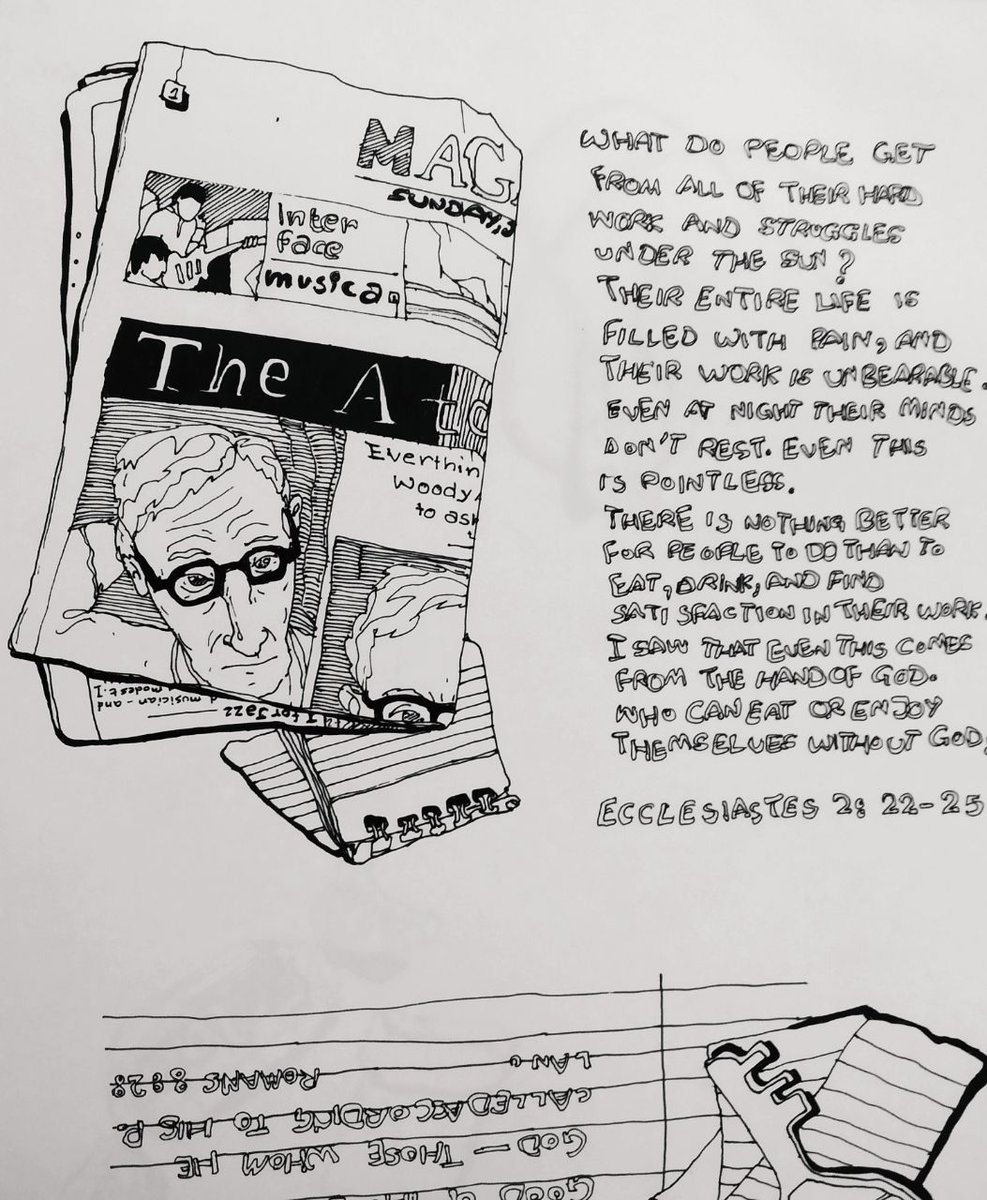 1
MAG
SUNDAY,
Inter
face
musica
The A
Everthin
Woody
to as
musician - and
modest. I
I for Jazz
WHAT DO PEOPLE GET
FROM ALL OF THEIR HARD
WORK AND STRUGGLES
UNDER THE SUN?
THEIR ENTIRE LIFE IS
FILLED WITH PAIN, AND
THEIR WORK IS UNBEARABLE.
EVEN AT NIGHT THEIR MINDS
DON'T REST. EVEN THIS
IS POINTLESS.
THERE IS NOTHING BETTER
FOR PEOPLE TO DO THAN TO
EAT, DRINK, AND FIND
SATISFACTION IN THEIR WORK.
I SAW THAT EVEN THIS COMES
FROM THE HAND OF GOD.
WHO CAN EAT OR ENJOY
THEMSELVES WITHOUT GOD.
ECCLESIASTES 2: 22-25
GOOD OF
GOD - THOSE WHOM HE
CALLED ACCORDING TO HIS P.
LAN.
ROMANS 8:28